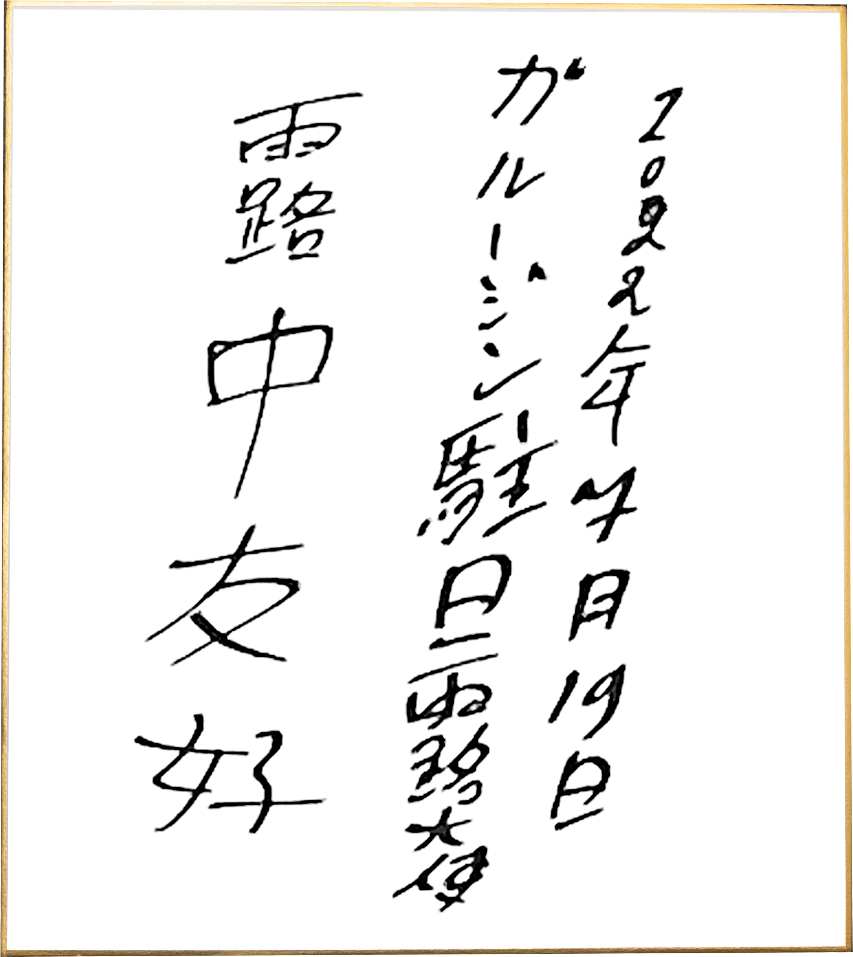 2022年7月19日
ガルージン駐日露大使
露中友好